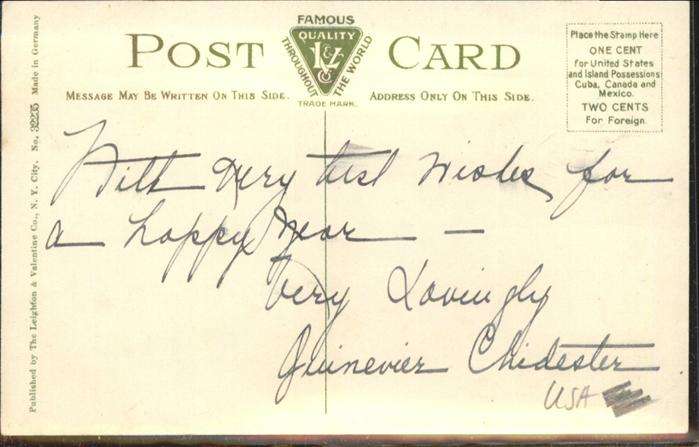 POST CARD
FAMOUS
QUALITY
THROUGHOUT THE WORLD
TRADE MARK.
MESSAGE MAY BE WRITTEN ON THIS SIDE.
ADDRESS ONLY ON THIS SIDE.
Place the Stamp Here
ONE CENT
for United States
and Island Possessions
Cuba, Canada and
Mexico.
TWO CENTS
For Foreign.
Published by The Leighton & Valentine Co., N. Y. City. No. 32235 Made in Germany
With very best wishes for
a happy year — —
Very Lovingly
Guinevier Chidester
USA